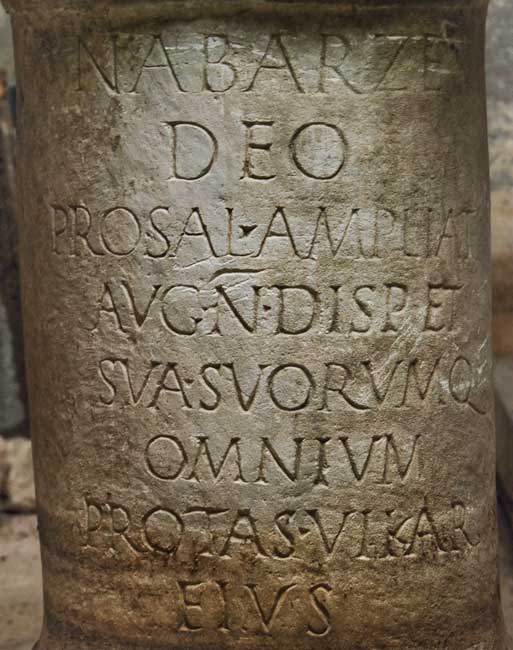 NABARZE
DEO
PRO·SAL·AMPLIAT
AVG·N·DISP·ET
SVA·SVORVMQ
OMNIVM
PROTAS·VIKAR
EIVS